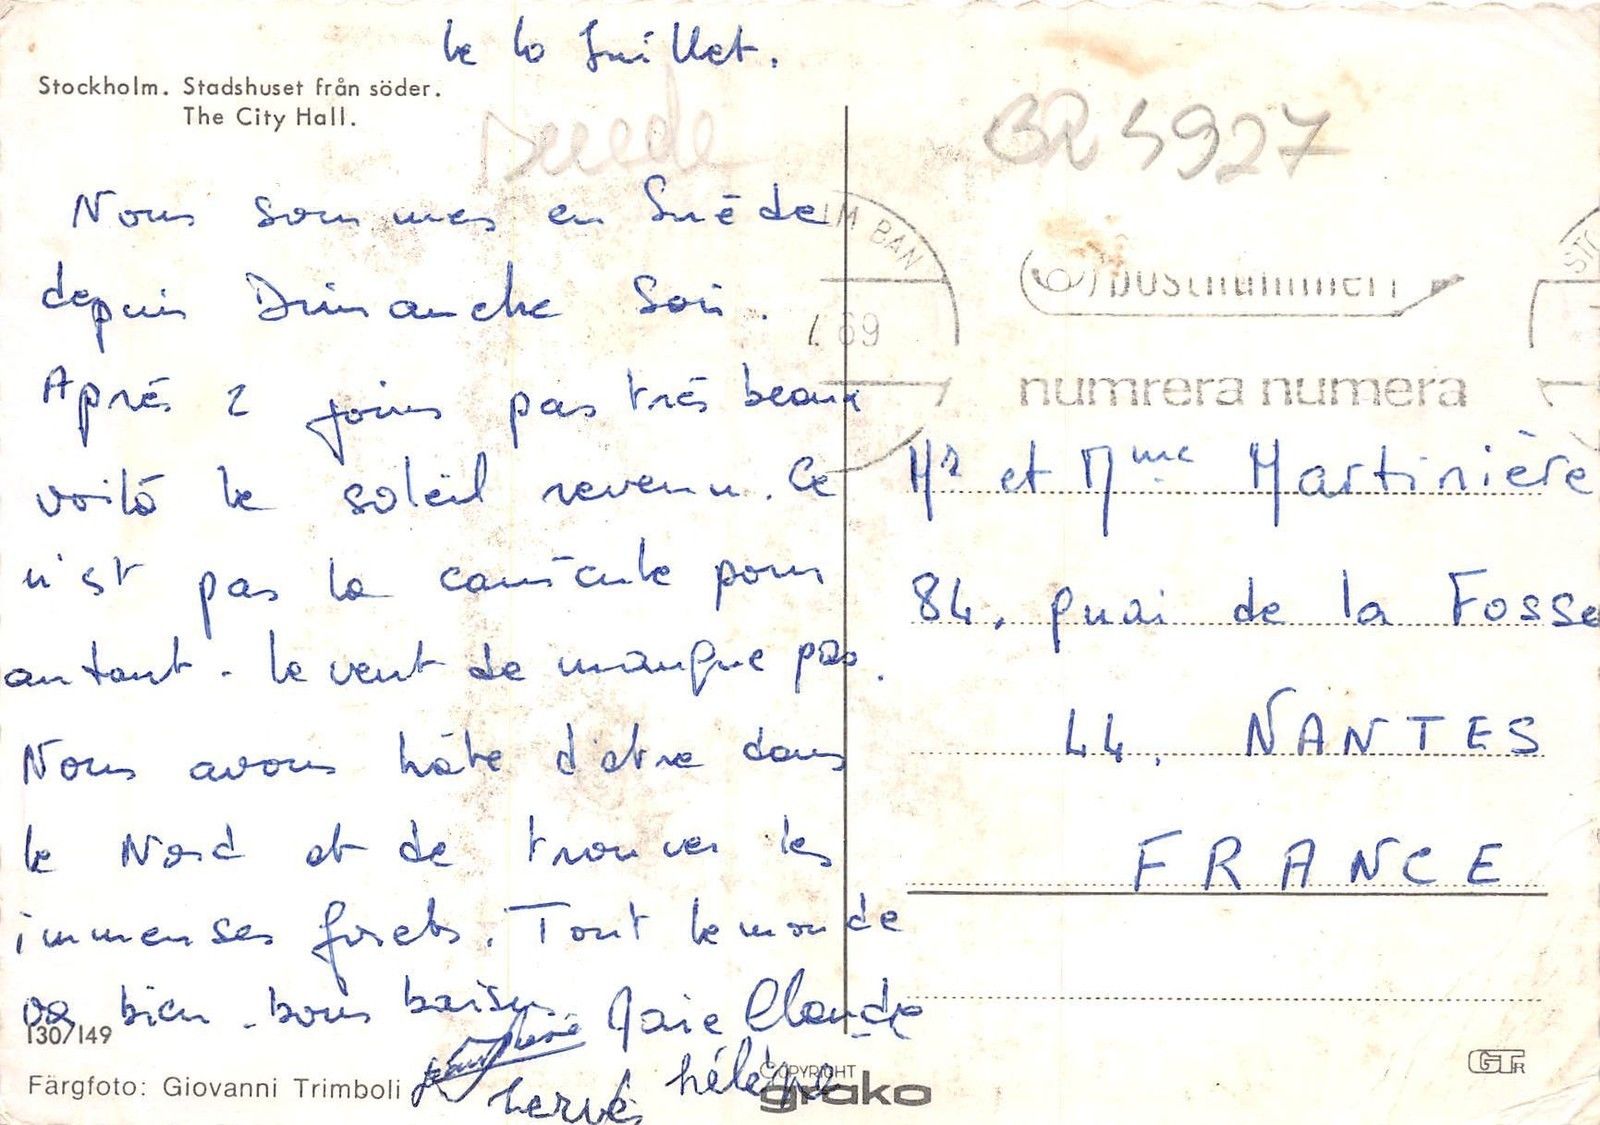 le 10 Juillet.
Stockholm. Stadshuset från söder.
The City Hall.
Nous sommes en Suède
depuis Dimanche Soir.
Après 2 jours pas très beaux
voilà le soleil revenu. Ce
n'est pas la canicule pour
autant - le vent de manque pas.
Nous avons hâte d'être dans
le Nord et de trouver les
immenses forets. Tout le monde
va bien - bons baisers Marie Claude
hervé hélène
130/149
Färgfoto: Giovanni Trimboli
COPYRIGHT
grako
BR 5927
LM BAN
69
postnummer
numrera numera
STO
Mr et Mme Martinière
84, quai de la Fosse
44, NANTES
FRANCE